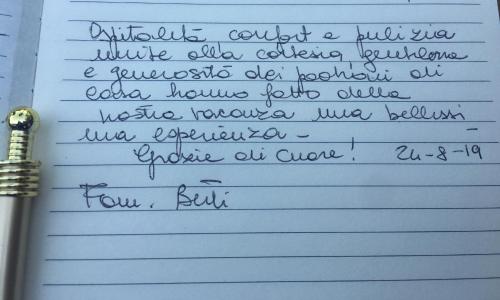 Ospitalità confort e pulizia
unite alla cortesia, gentilezza
e generosità dei padroni di
casa hanno fatto della
nostra vacanza una bellissi
ma esperienza -
Grazie di cuore! 24-8-19
Fam. Berti